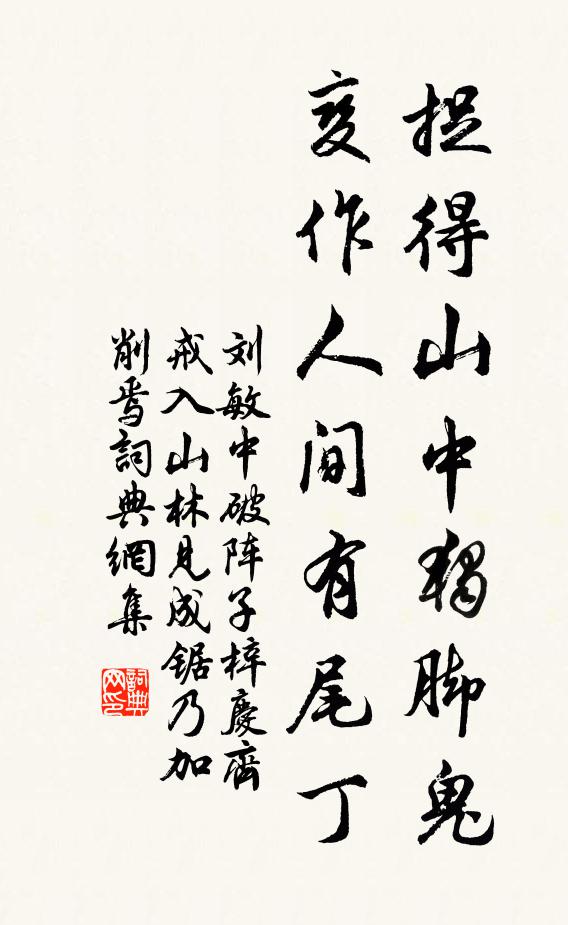 捉得山中獨脚鬼
变作人间有尾丁
刘敏中破阵子梓慶齊
戒入山林見成锯乃加
削焉詞典網集
詞典网印